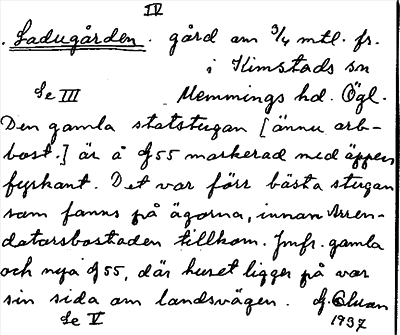 IV
Ladugården. gård om 3/4 mtl. fr.
i Kimstads sn
Se III Memmings hd. Ögl.
Den gamla statstugan [ännu arb-
bost.] är å G55 markerad med öppen
fyrkant. Det var förr bästa stugan
som fanns på ägorna, innan Arren-
datorsbostaden tillkom. Jmfr. gamla
och nya G55, där huset ligger på var
sin sida om landsvägen. G.
Se V 1937